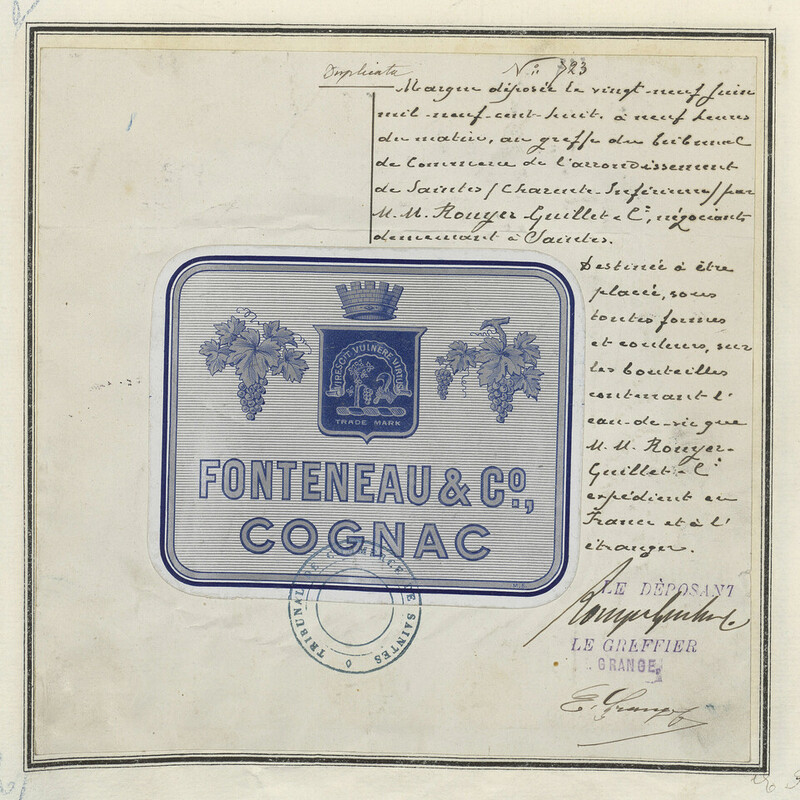 Duplicata
N° 723
Marque déposée le vingt-neuf Juin
mil-neuf-cent-huit. à neuf heures
du matin, au greffe du Tribunal
de Commerce de l'arrondissement
de Saintes / Charente-Inférieure / par
M. M. Rouyer-Guillet & Cie, négociants
demeurant à Saintes.
Destinée à être
placée, sous
toutes formes
et couleurs, sur
les bouteilles
contenant l'
eau-de-vie que
M. M. Rouyer-
Guillet & Cie
expédient en
France et à l'
étranger.
VIRESCIT VULNERE VIRTUS
TRADE MARK
FONTENEAU & Co.,
COGNAC
TRIBUNAL DE COMMERCE DE SAINTES
LE DÉPOSANT
Rouyer Guillet & C
LE GREFFIER
GRANGE
E. Grange